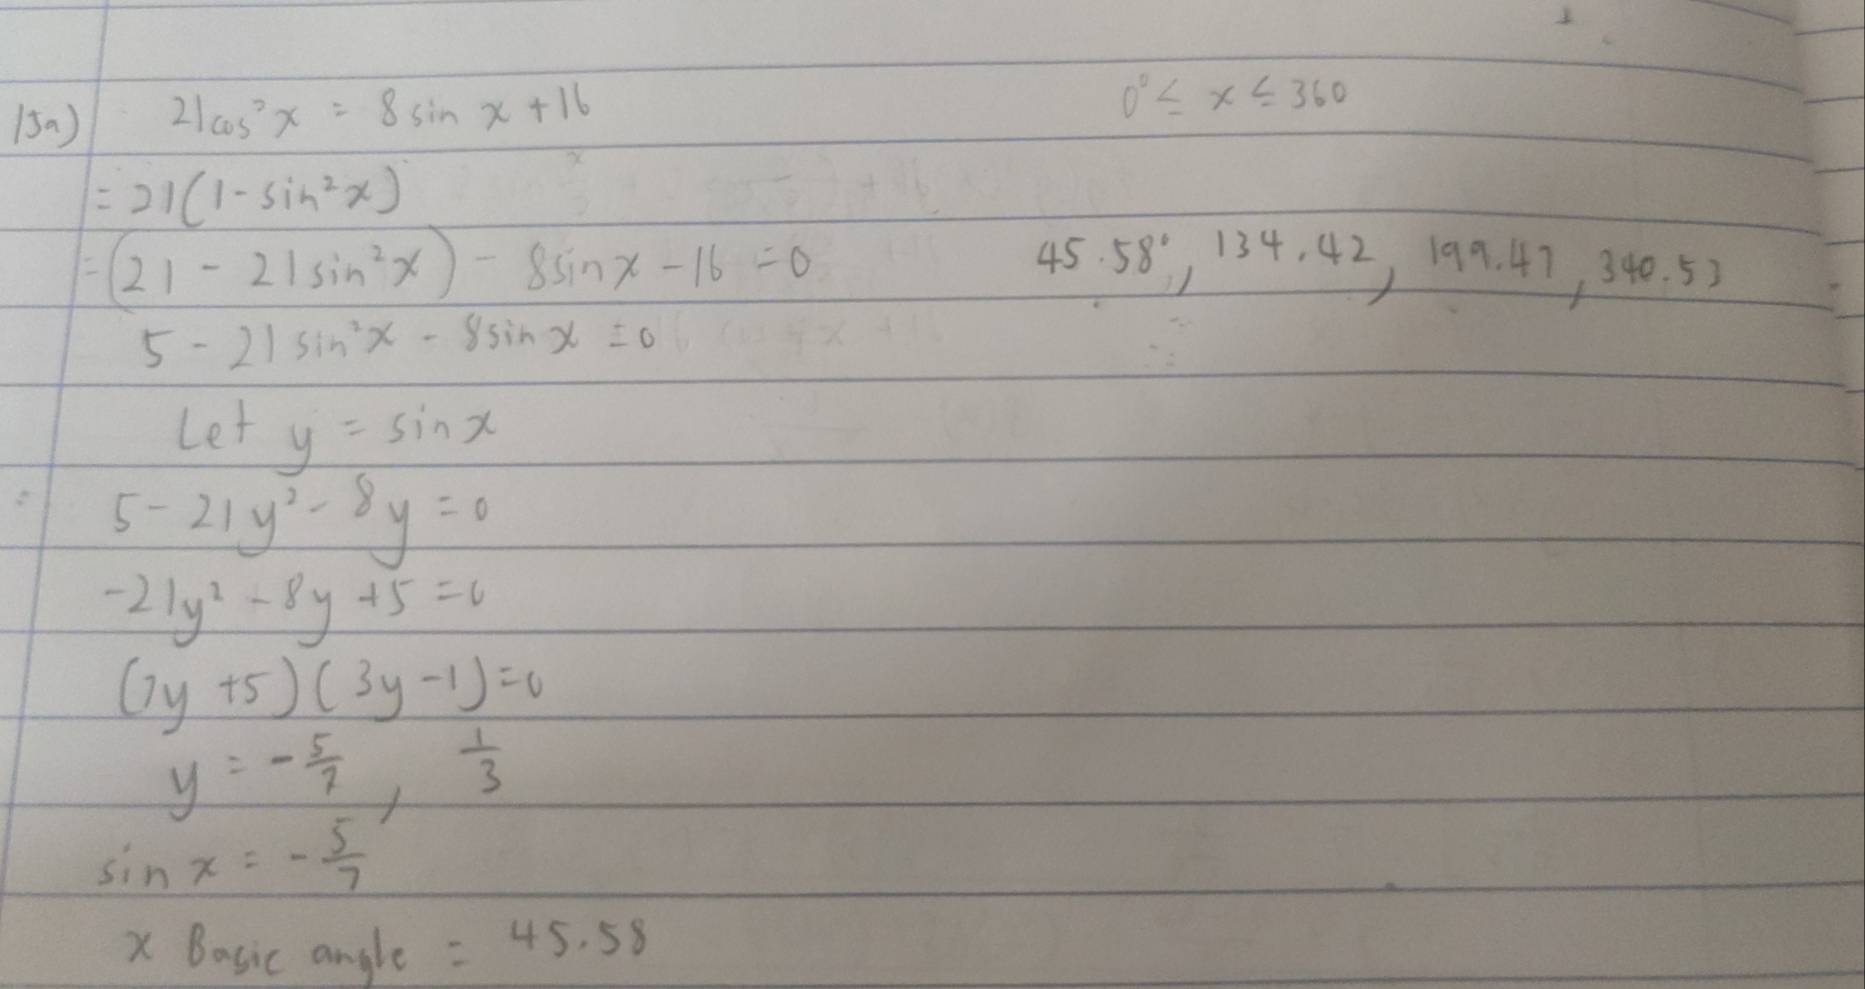 15a) 21cos²x = 8sin x + 16 0° ≤ x ≤ 360
= 21(1 - sin²x)
= (21 - 21sin²x) - 8sinx - 16 = 0 45.58°, 134.42, 199.47, 340.53
5 - 21sin²x - 8sinx = 0
Let y = sinx
5 - 21y² - 8y = 0
-21y² - 8y + 5 = 0
(7y + 5)(3y - 1) = 0
y = -5/7, 1/3
sin x = -5/7
x Basic angle = 45.58